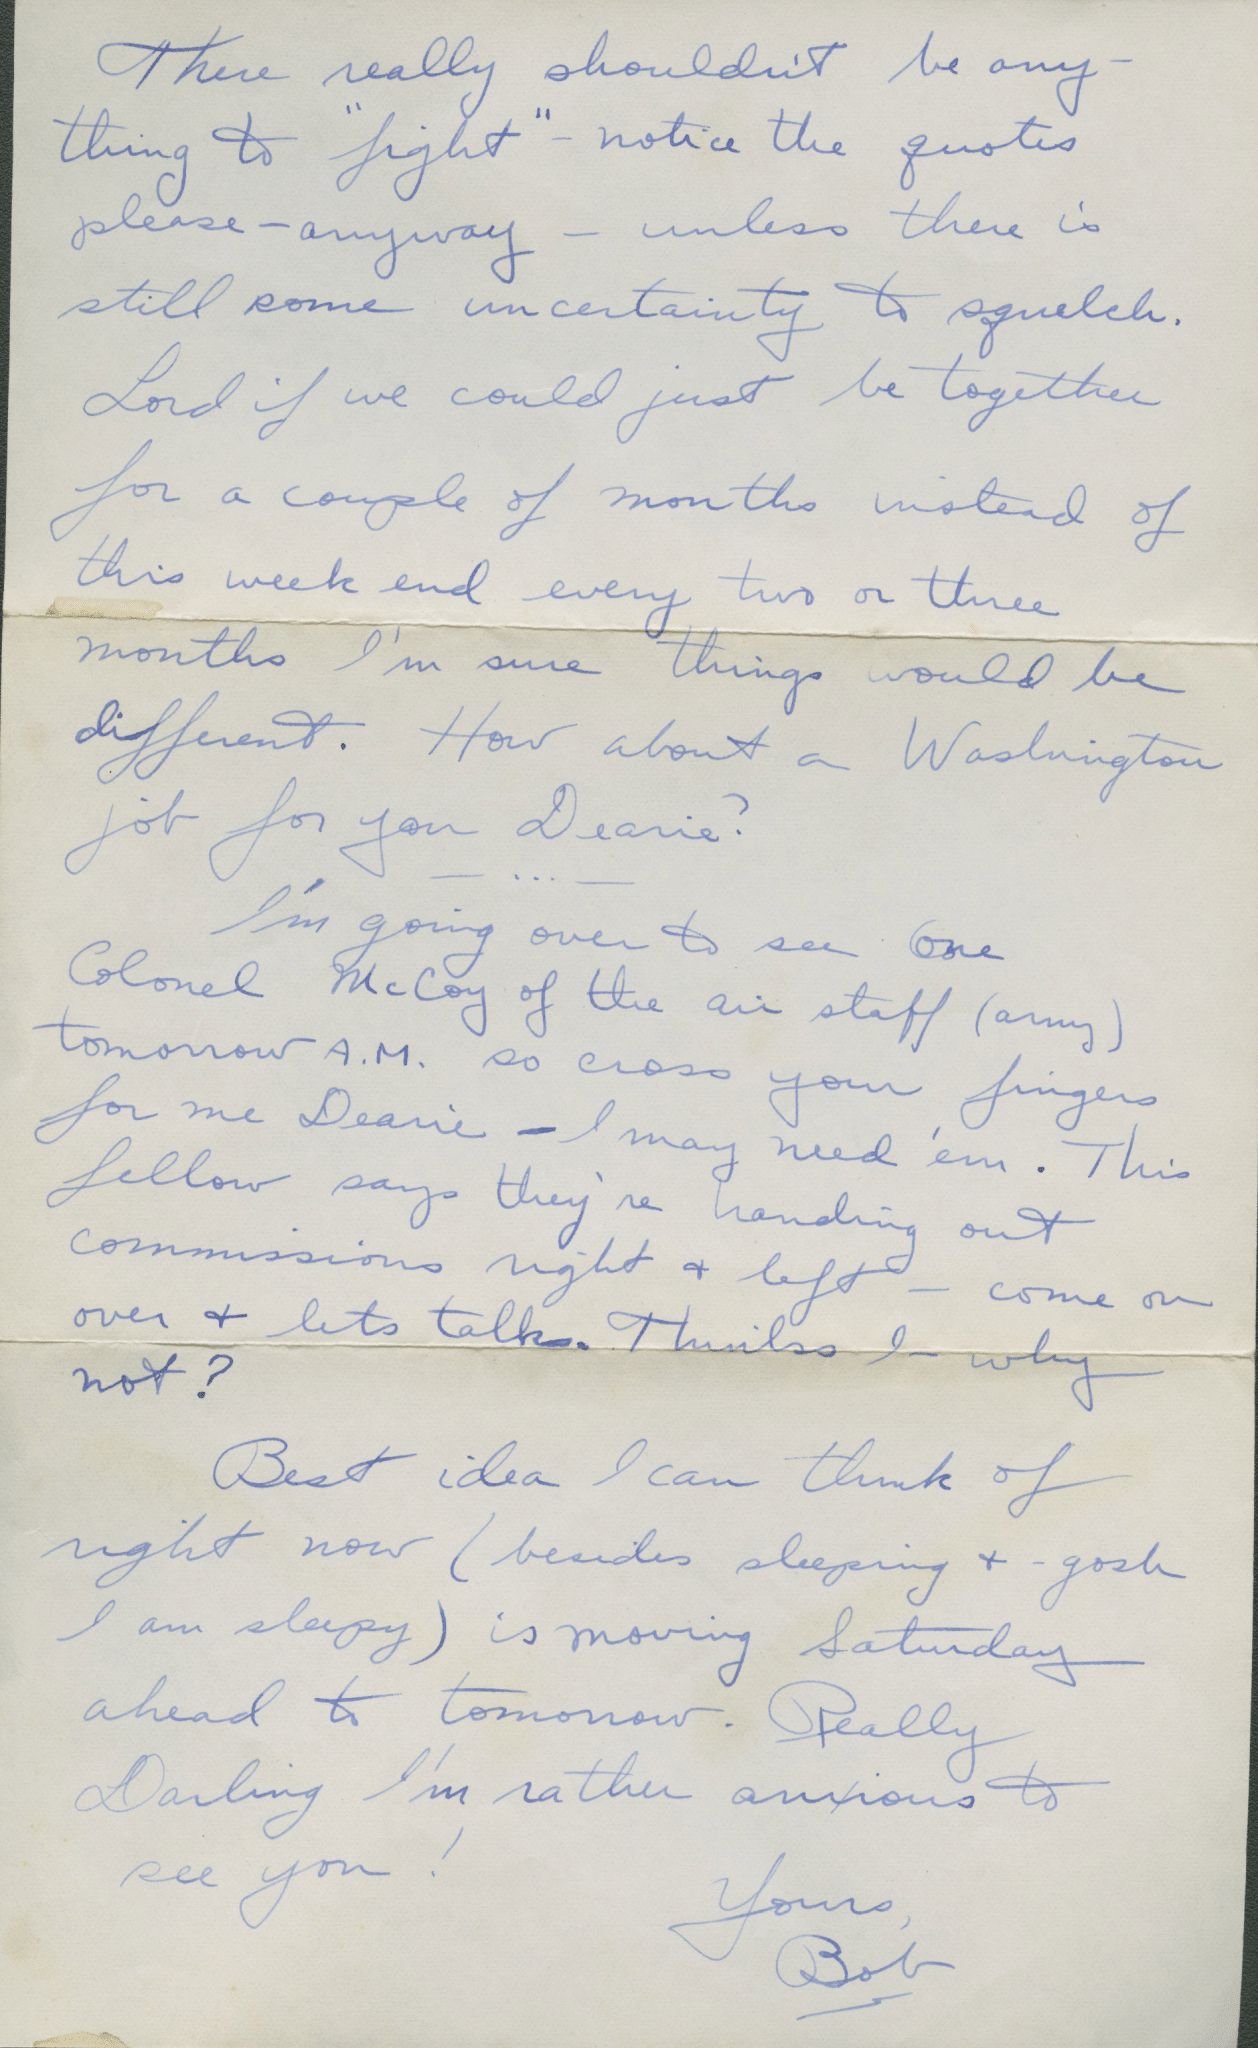 There really shouldn't be any-
thing to "fight" - notice the quotes
please - anyway - unless there is
still some uncertainty to squelch.
Lord if we could just be together
for a couple of months instead of
this week end every two or three
months I'm sure things would be
different. How about a Washington
job for you Dearie?
— ... —
I'm going over to see one
Colonel McCoy of the air staff (army)
tomorrow A.M. so cross your fingers
for me Dearie - I may need 'em. This
fellow says they're handing out
commissions right + left - come on
over + lets talk. Thinks I - why
not?
Best idea I can think of
right now (besides sleeping + - gosh
I am sleepy) is moving Saturday
ahead to tomorrow. Really
Darling I'm rather anxious to
see you!
Yours,
Bob